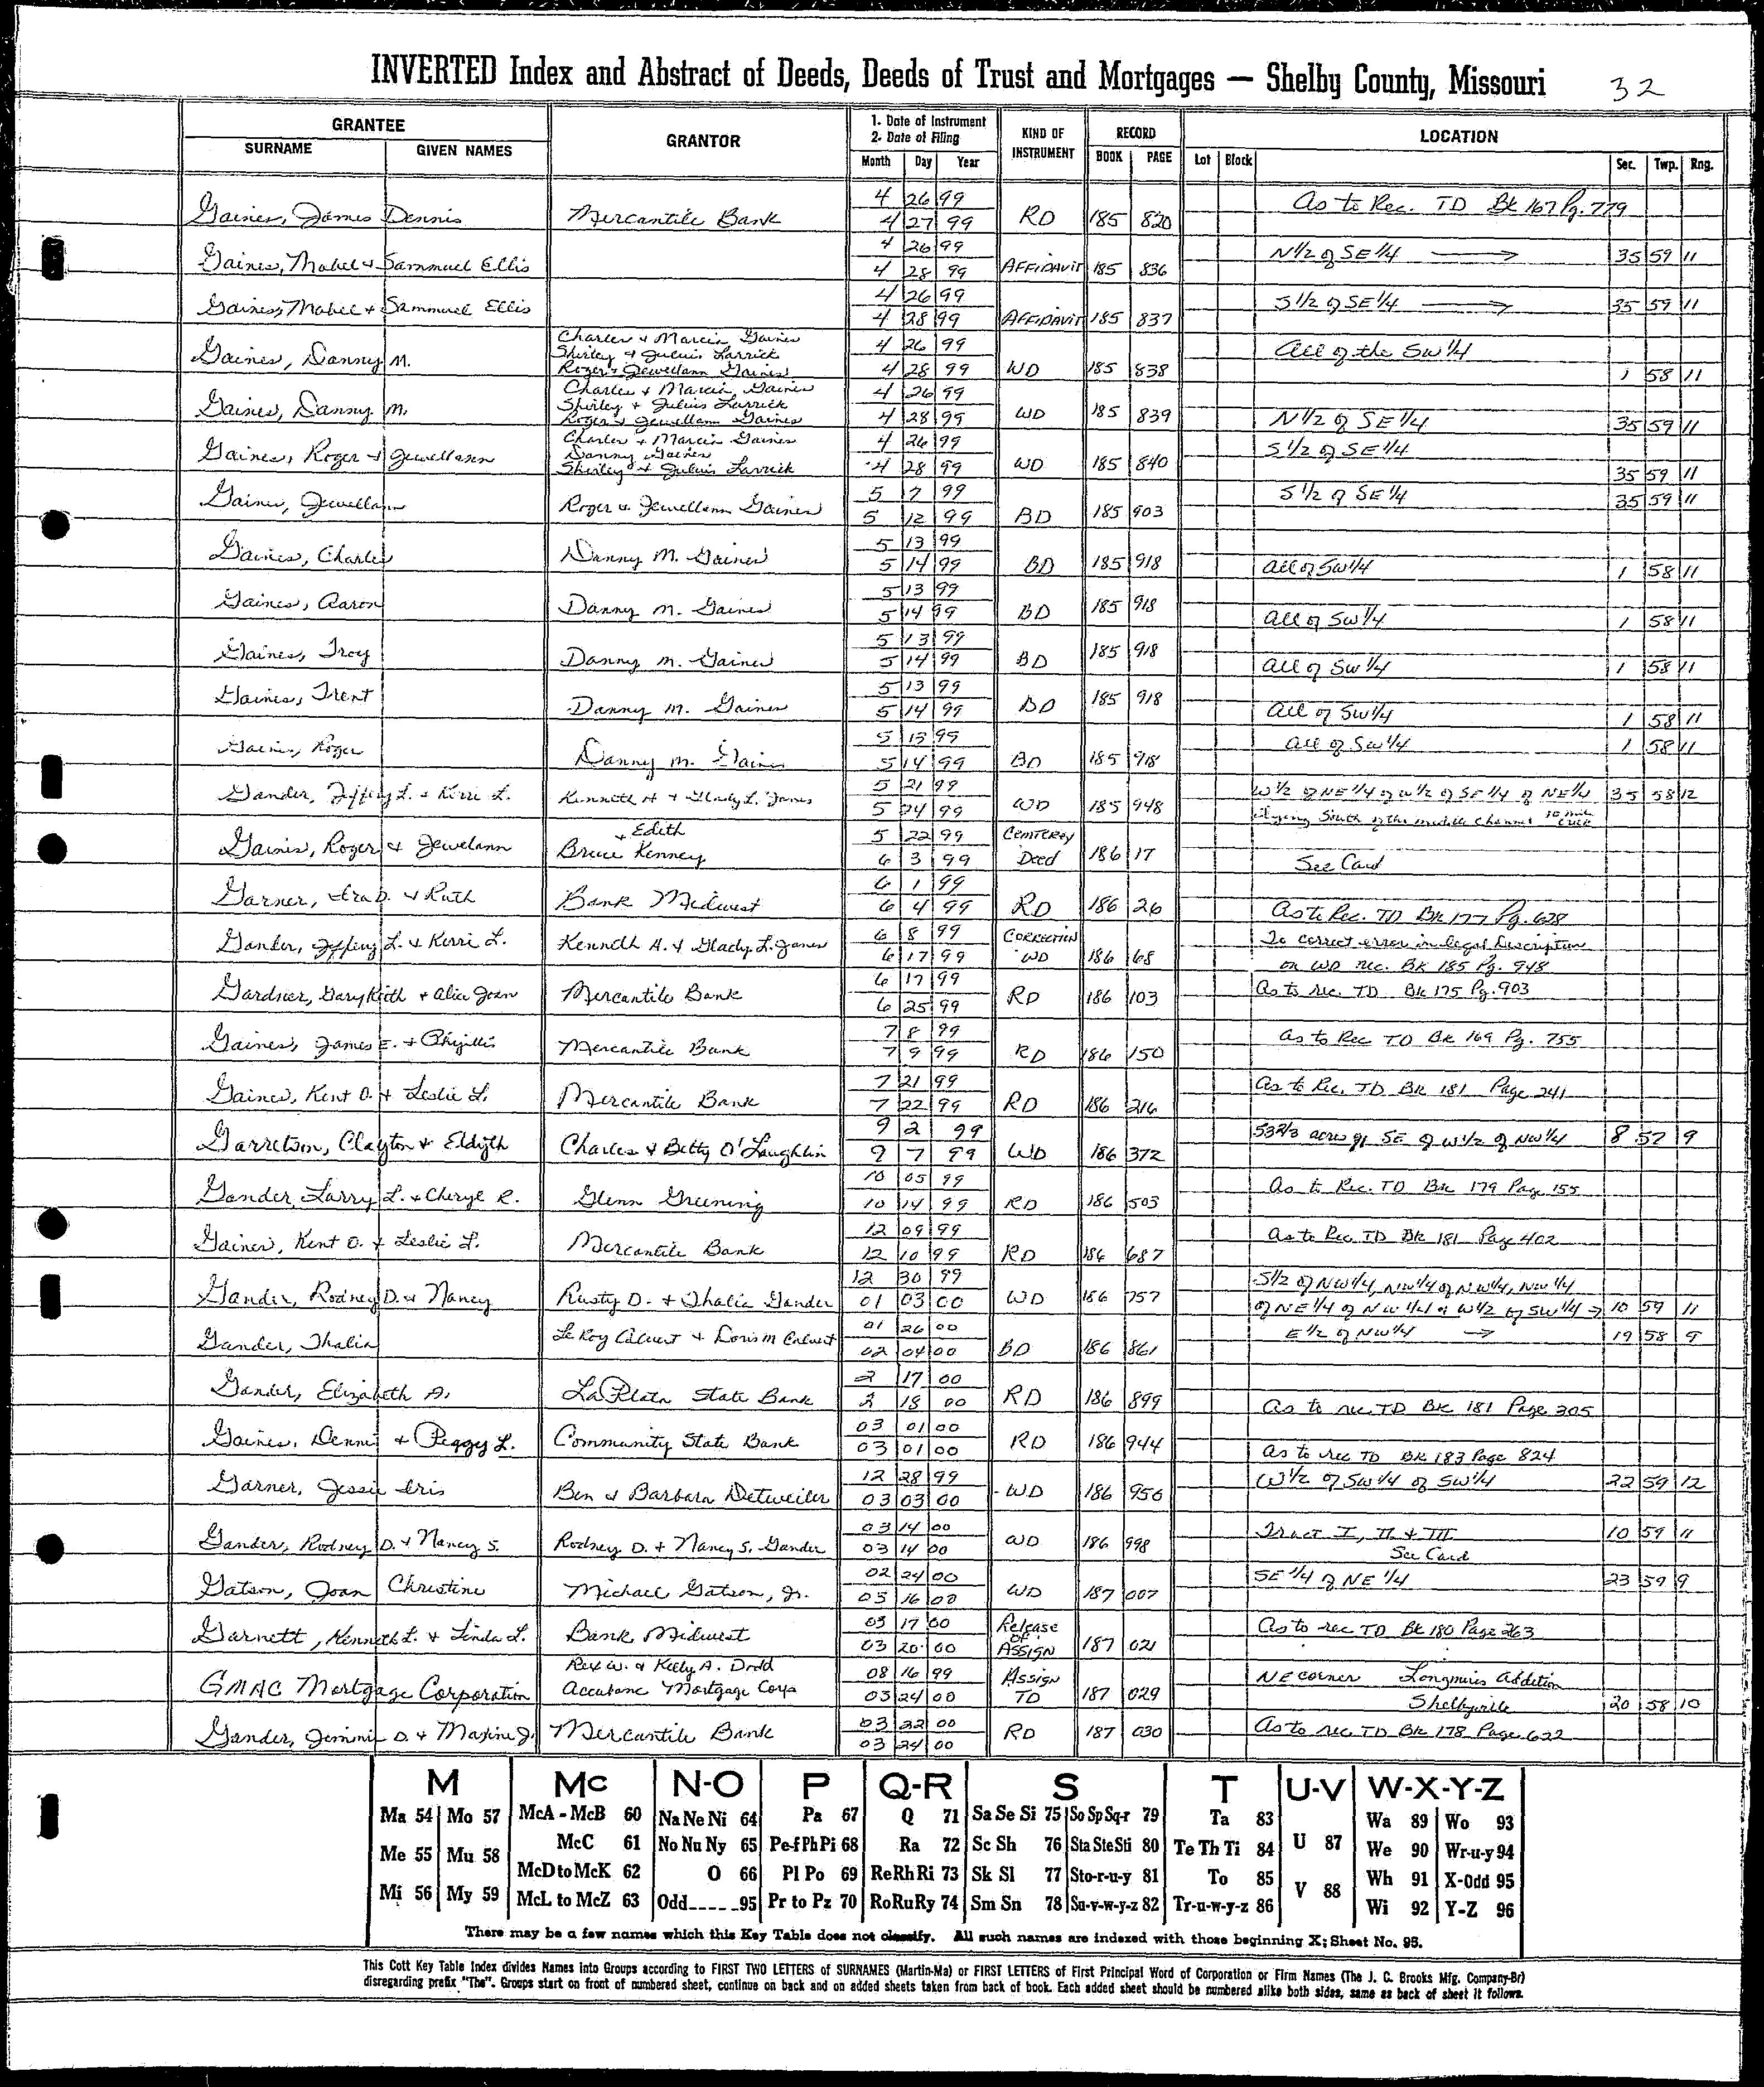 INVERTED Index and Abstract of Deeds, Deeds of Trust and Mortgages — Shelby County, Missouri 32
GRANTEE GRANTOR 1. Date of Instrument 2. Date of Filing KIND OF INSTRUMENT RECORD LOCATION
SURNAME GIVEN NAMES Month Day Year BOOK PAGE Lot Block Sec. Twp. Rng.
Gaines, James Dennis Mercantile Bank 4 26 99 4 27 99 RD 185 820 As to Rec. TD Bk 167 Pg. 779
Gaines, Mabel & Sammuel Ellis 4 26 99 4 28 99 AFFIDAVIT 185 836 N 1/2 of SE 1/4 → 35 59 11
Gaines, Mabel & Sammuel Ellis 4 26 99 4 28 99 AFFIDAVIT 185 837 S 1/2 of SE 1/4 → 35 59 11
Gaines, Danny M. Charles & Marcia Gaines Shirley & Julius Larrick Roger & Jewellann Gaines 4 26 99 4 28 99 WD 185 838 All of the SW 1/4 1 58 11
Gaines, Danny M. Charles & Marcia Gaines Shirley & Julius Larrick Roger & Jewellann Gaines 4 26 99 4 28 99 WD 185 839 N 1/2 of SE 1/4 35 59 11
Gaines, Roger & Jewellann Charles & Marcia Gaines Danny Gaines Shirley & Julius Larrick 4 26 99 4 28 99 WD 185 840 S 1/2 of SE 1/4 35 59 11
Gaines, Jewellann Roger & Jewellann Gaines 5 7 99 5 12 99 BD 185 903 S 1/2 of SE 1/4 35 59 11
Gaines, Charles Danny M. Gaines 5 13 99 5 14 99 BD 185 918 All of SW 1/4 1 58 11
Gaines, Aaron Danny M. Gaines 5 13 99 5 14 99 BD 185 918 All of SW 1/4 1 58 11
Gaines, Troy Danny M. Gaines 5 13 99 5 14 99 BD 185 918 All of SW 1/4 1 58 11
Gaines, Trent Danny M. Gaines 5 13 99 5 14 99 BD 185 918 All of SW 1/4 1 58 11
Gaines, Roger Danny M. Gaines 5 13 99 5 14 99 BD 185 918 All of SW 1/4 1 58 11
Gander, Jeffery L. & Kerri L. Kenneth A & Glady L. James 5 21 99 5 24 99 WD 185 948 W 1/2 of NE 1/4 of W 1/2 of SE 1/4 of NE 1/4 35 58 12
South of the middle Channel 10 mile
Gaines, Roger & Jewelann Bruce & Edith Kenney 5 22 99 6 3 99 CEMTEREY Deed 186 17 See Card
Garner, Ira D. & Ruth Bank Midwest 6 1 99 6 4 99 RD 186 26 As to Rec. TD Bk 177 Pg. 678
Gander, Jeffery L. & Kerri L. Kenneth A. & Glady L. James 6 8 99 6 17 99 CORRECTION WD 186 68 To correct error in legal Description
on WD rec. BK 185 Pg. 948
Gardner, Gary Keith & Alice Joan Mercantile Bank 6 17 99 6 25 99 RD 186 103 As to rec. TD Bk 175 Pg. 903
Gaines, James E. & Phyillis Mercantile Bank 7 8 99 7 9 99 RD 186 150 As to Rec TD Bk 169 Pg. 755
Gaines, Kent O. & Leslie L. Mercantile Bank 7 21 99 7 22 99 RD 186 216 As to Rec. TD Bk 181 Page 241
Garretson, Clayton & Eldyth Charles & Betty O'Laughlin 9 2 99 9 7 99 WD 186 372 53 2/3 acres of SE of W 1/2 of NW 1/4 8 57 9
Gander, Larry L. & Cheryl R. Glenn Greening 10 05 99 10 14 99 RD 186 503 As to Rec. TD Bk 179 Page 155
Gaines, Kent O. & Leslie L. Mercantile Bank 12 09 99 12 10 99 RD 186 687 As to Rec. TD Bk 181 Page 402
Gander, Rodney D. & Nancy Rusty D. & Thalia Gander 12 30 99 01 03 00 WD 186 757 S 1/2 of NW 1/4, NW 1/4 of NW 1/4, NW 1/4
of NE 1/4 of NW 1/4 & W 1/2 of SW 1/4 → 10 59 11
Gander, Thalia Le Roy Calvert & Doris M Calvert 01 26 00 02 04 00 BD 186 861 E 1/2 of NW 1/4 → 19 58 9
Gander, Elizabeth A. La Plata State Bank 2 17 00 2 18 00 RD 186 899 As to rec TD Bk 181 Page 205
Gaines, Dennis & Peggy L. Community State Bank 03 01 00 03 01 00 RD 186 944 As to rec TD Bk 183 Page 824
Garner, Jessie Iris Ben & Barbara Detweiler 12 28 99 03 03 00 WD 186 956 W 1/2 of SW 1/4 of SW 1/4 22 59 12
Gander, Rodney D. & Nancy S. Rodney D. & Nancy S. Gander 03 14 00 03 14 00 WD 186 998 Tract I, II & III 10 59 11
See Card
Gatson, Joan Christine Michael Gatson, Jr. 02 24 00 03 16 00 WD 187 007 SE 1/4 of NE 1/4 23 59 9
Garnett, Kenneth L. & Linda L. Bank Midwest 03 17 00 03 20 00 Release OF ASSIGN 187 021 As to rec TD Bk 180 Page 263
GMAC Mortgage Corporation Rex W. & Kelly A. Dodd Accubanc Mortgage Corp 08 16 99 03 24 00 Assign TD 187 029 NE corner Longmires Addition
Shelbyville 20 58 10
Gander, Jimmie D. & Maxine J. Mercantile Bank 03 22 00 03 24 00 RD 187 030 As to rec TD Bk 178 Page 622
M Mc N-O P Q-R S T U-V W-X-Y-Z
Ma 54 Mo 57 McA - McB 60 Na Ne Ni 64 Pa 67 Q 71 Sa Se Si 75 So Sp Sq-r 79 Ta 83 Wa 89 Wo 93
Me 55 Mu 58 McC 61 No Nu Ny 65 Pe-f Ph Pi 68 Ra 72 Sc Sh 76 Sta Ste Sti 80 Te Th Ti 84 U 87 We 90 Wr-u-y 94
McD to McK 62 O 66 Pl Po 69 Re Rh Ri 73 Sk Sl 77 Sto-r-u-y 81 To 85 V 88 Wh 91 X-Odd 95
Mi 56 My 59 McL to McZ 63 Odd_____95 Pr to Pz 70 Ro Ru Ry 74 Sm Sn 78 Su-v-w-y-z 82 Tr-u-w-y-z 86 Wi 92 Y-Z 96
There may be a few names which this Key Table does not classify. All such names are indexed with those beginning X; Sheet No. 95.
This Cott Key Table Index divides Names into Groups according to FIRST TWO LETTERS of SURNAMES (Martin-Ma) or FIRST LETTERS of First Principal Word of Corporation or Firm Names (The J. C. Brooks Mfg. Company-Br)
disregarding prefix "The". Groups start on front of numbered sheet, continue on back and on added sheets taken from back of book. Each added sheet should be numbered alike both sides, same as back of sheet it follows.